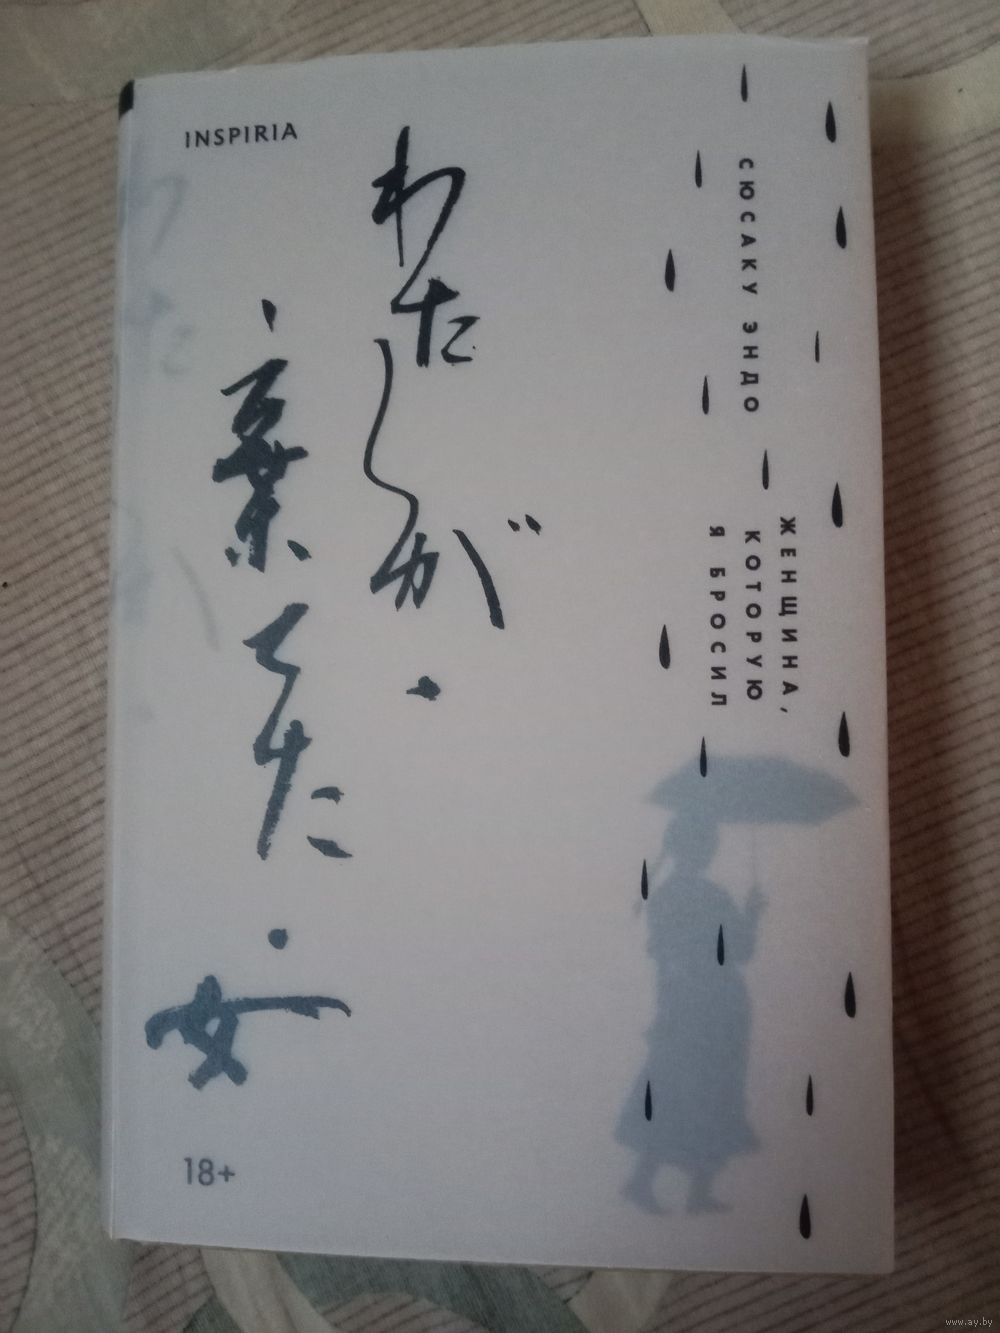 INSPIRIA
わたしが・
棄てた・女
СЮСАКУ ЭНДО
ЖЕНЩИНА,
КОТОРУЮ
Я БРОСИЛ
18+
www.ay.by